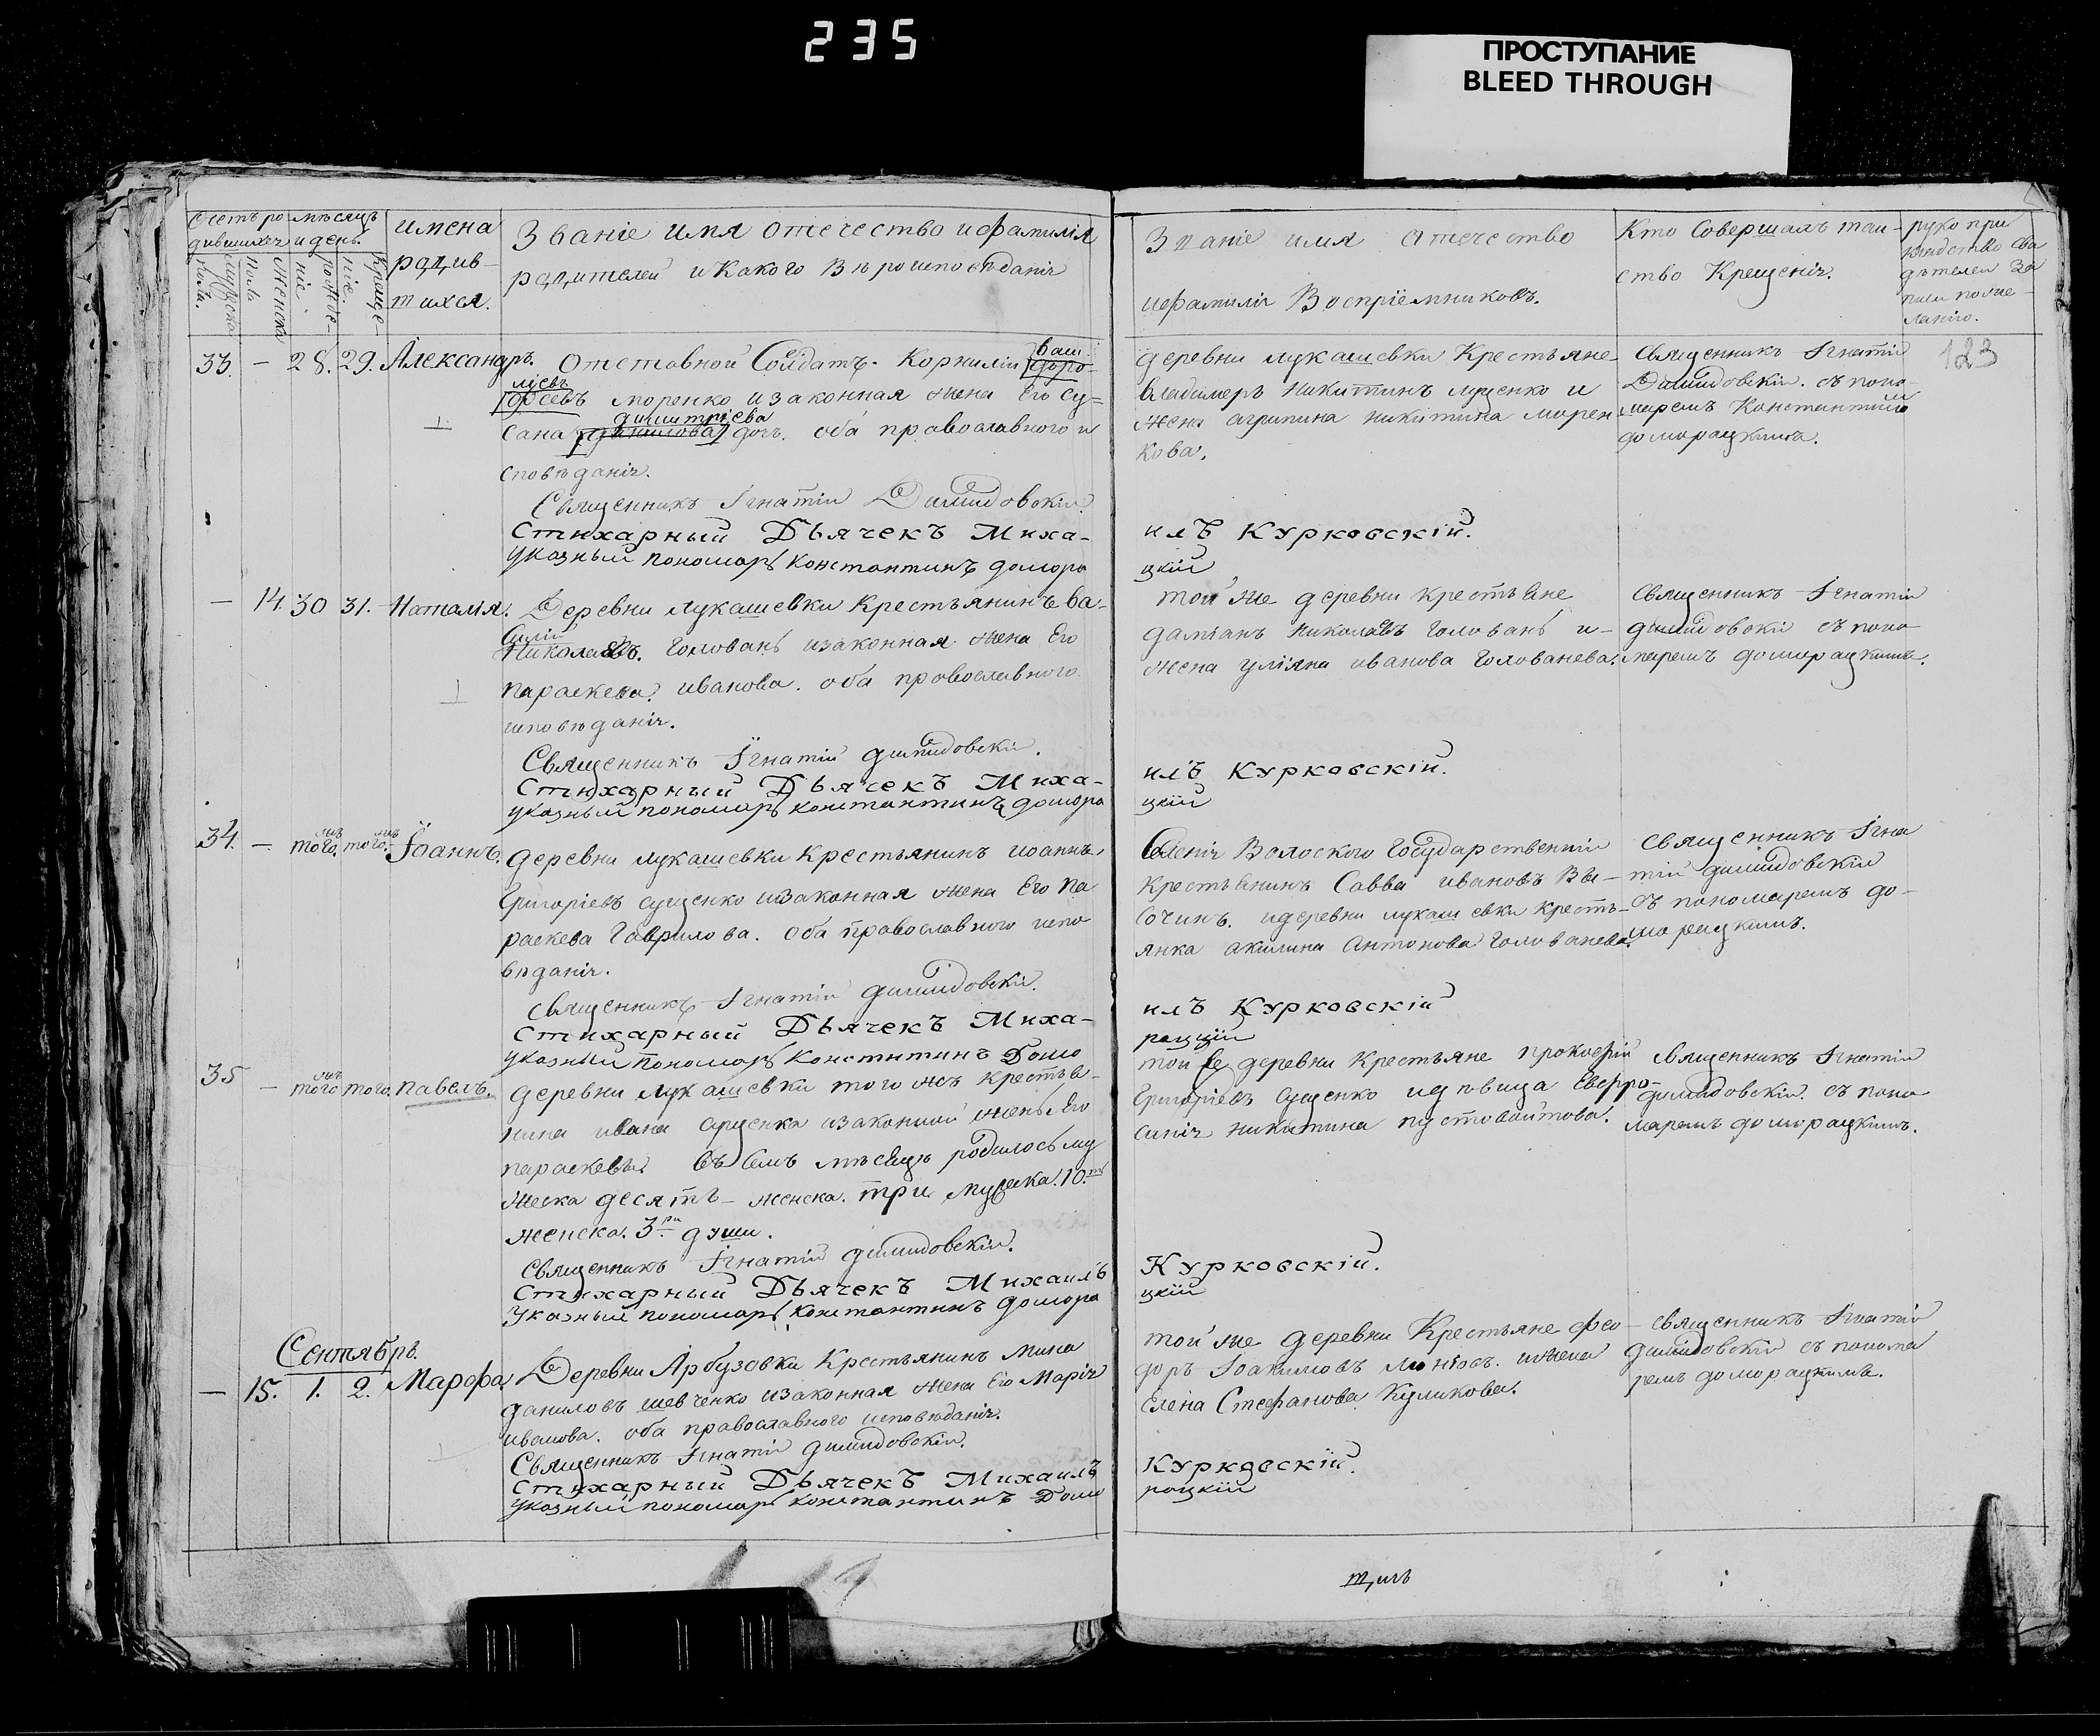 235
ПРОСТУПАНИЕ
BLEED THROUGH
Счетъ ро
дившихся
мѣсяцъ
и день.
мужска
пола.
женска
пола
рожде-
ніе
креще-
ніе
имена
родив-
шихся.
Званіе имя отечество и фамилія
родителей и какого вѣроисповѣданія
Званіе имя отечество
и фамилія Воспріемниковъ.
Кто Совершалъ таи-
ство Крещенія.
руко при
кладство сви
дѣтелей за
писи по же-
ланію.
123
33. — 28. 29. Александръ.
Отставной Солдатъ Корнилій
моренко и законная жена Его Су-
димитріева
сана дочь. оба православнаго и
сповѣданія.
Священникъ Игнатій Димидовскій.
Стихарный Дьячекъ Миха-
указный пономарь Константинъ домора
деревни лукашевки Крестьяне
Владимеръ Никитинъ луценко и
жена агрипина никитина морен
кова.
илъ Курковскій.
цкій
Священникъ Игнатій
Димидовскій. съ поно-
маремъ Константиномъ
доморацкимъ.
— 14. 30 31. Наталія.
Деревни лукашевки Крестьянинъ Ва-
силій
Николаевъ. Головань и законная жена Его
параскева иванова. оба православнаго
исповѣданія.
Священникъ Игнатій димидовскій.
Стихарный Дьячекъ Миха-
указный пономарь константинъ домора
той же деревни крестьяне
даміанъ Николаевъ Головань и
жена уліяна иванова Голованева.
илъ Курковскій.
цкій
Священникъ Игнатій
димидовскій съ поно-
маремъ доморацкимъ.
34. — того. того. Іоаннъ.
деревни лукашевки Крестьянинъ иоаннъ
Григоріевъ сущенко и законная жена Его па
раскева Гаврилова. оба православнаго испо
вѣданія.
Священникъ Игнатій димидовскій.
Стихарный Дьячекъ Миха-
указный пономарь Константинъ Домо
Селенія Волоского Государственній
Крестьянинъ Савва ивановъ Вы-
сочинъ. и деревни лукашевки кресть-
янка акилина антонова Голованева.
илъ Курковскій
рацкій
Священникъ Игна
тій димидовскій
съ пономаремъ до-
морацкимъ.
35 — того того. павелъ.
деревни лукашевки того жъ крестья-
нина ивана сущенка и законной жены Его
параскевы. Въ Семъ мѣсяцѣ родилось му
жеска десять — женска. три мужеска. 10.ть
женска. 3.ри души.
Священникъ Игнатій димидовскій.
Стихарный Дьячекъ Михаилъ
Указный пономарь константинъ домора
той же деревни Крестьяне прокофій
Григоріевъ сущенко и дѣвица Евфро-
синія никитина пустовойтова.
Курковскій.
цкій
Священникъ Игнатій
димидовскій. съ поно
маремъ доморацкимъ.
Сентябрь.
— 15. 1. 2. Марфа.
Деревни Арбузовки Крестьянинъ мина
даниловъ шевченко и законная жена Его Марія
иванова. оба православнаго исповѣданія.
Священникъ Игнатій димидовскій.
Стихарный Дьячекъ Михаилъ
указный пономарь константинъ Домо
той же деревни Крестьяне фео-
доръ Іоакимовъ и жена
Елена Стефанова Куликова.
Курковскій.
рацкій
священникъ Игнатій
димидовскій съ понома
ремъ доморацкимъ.